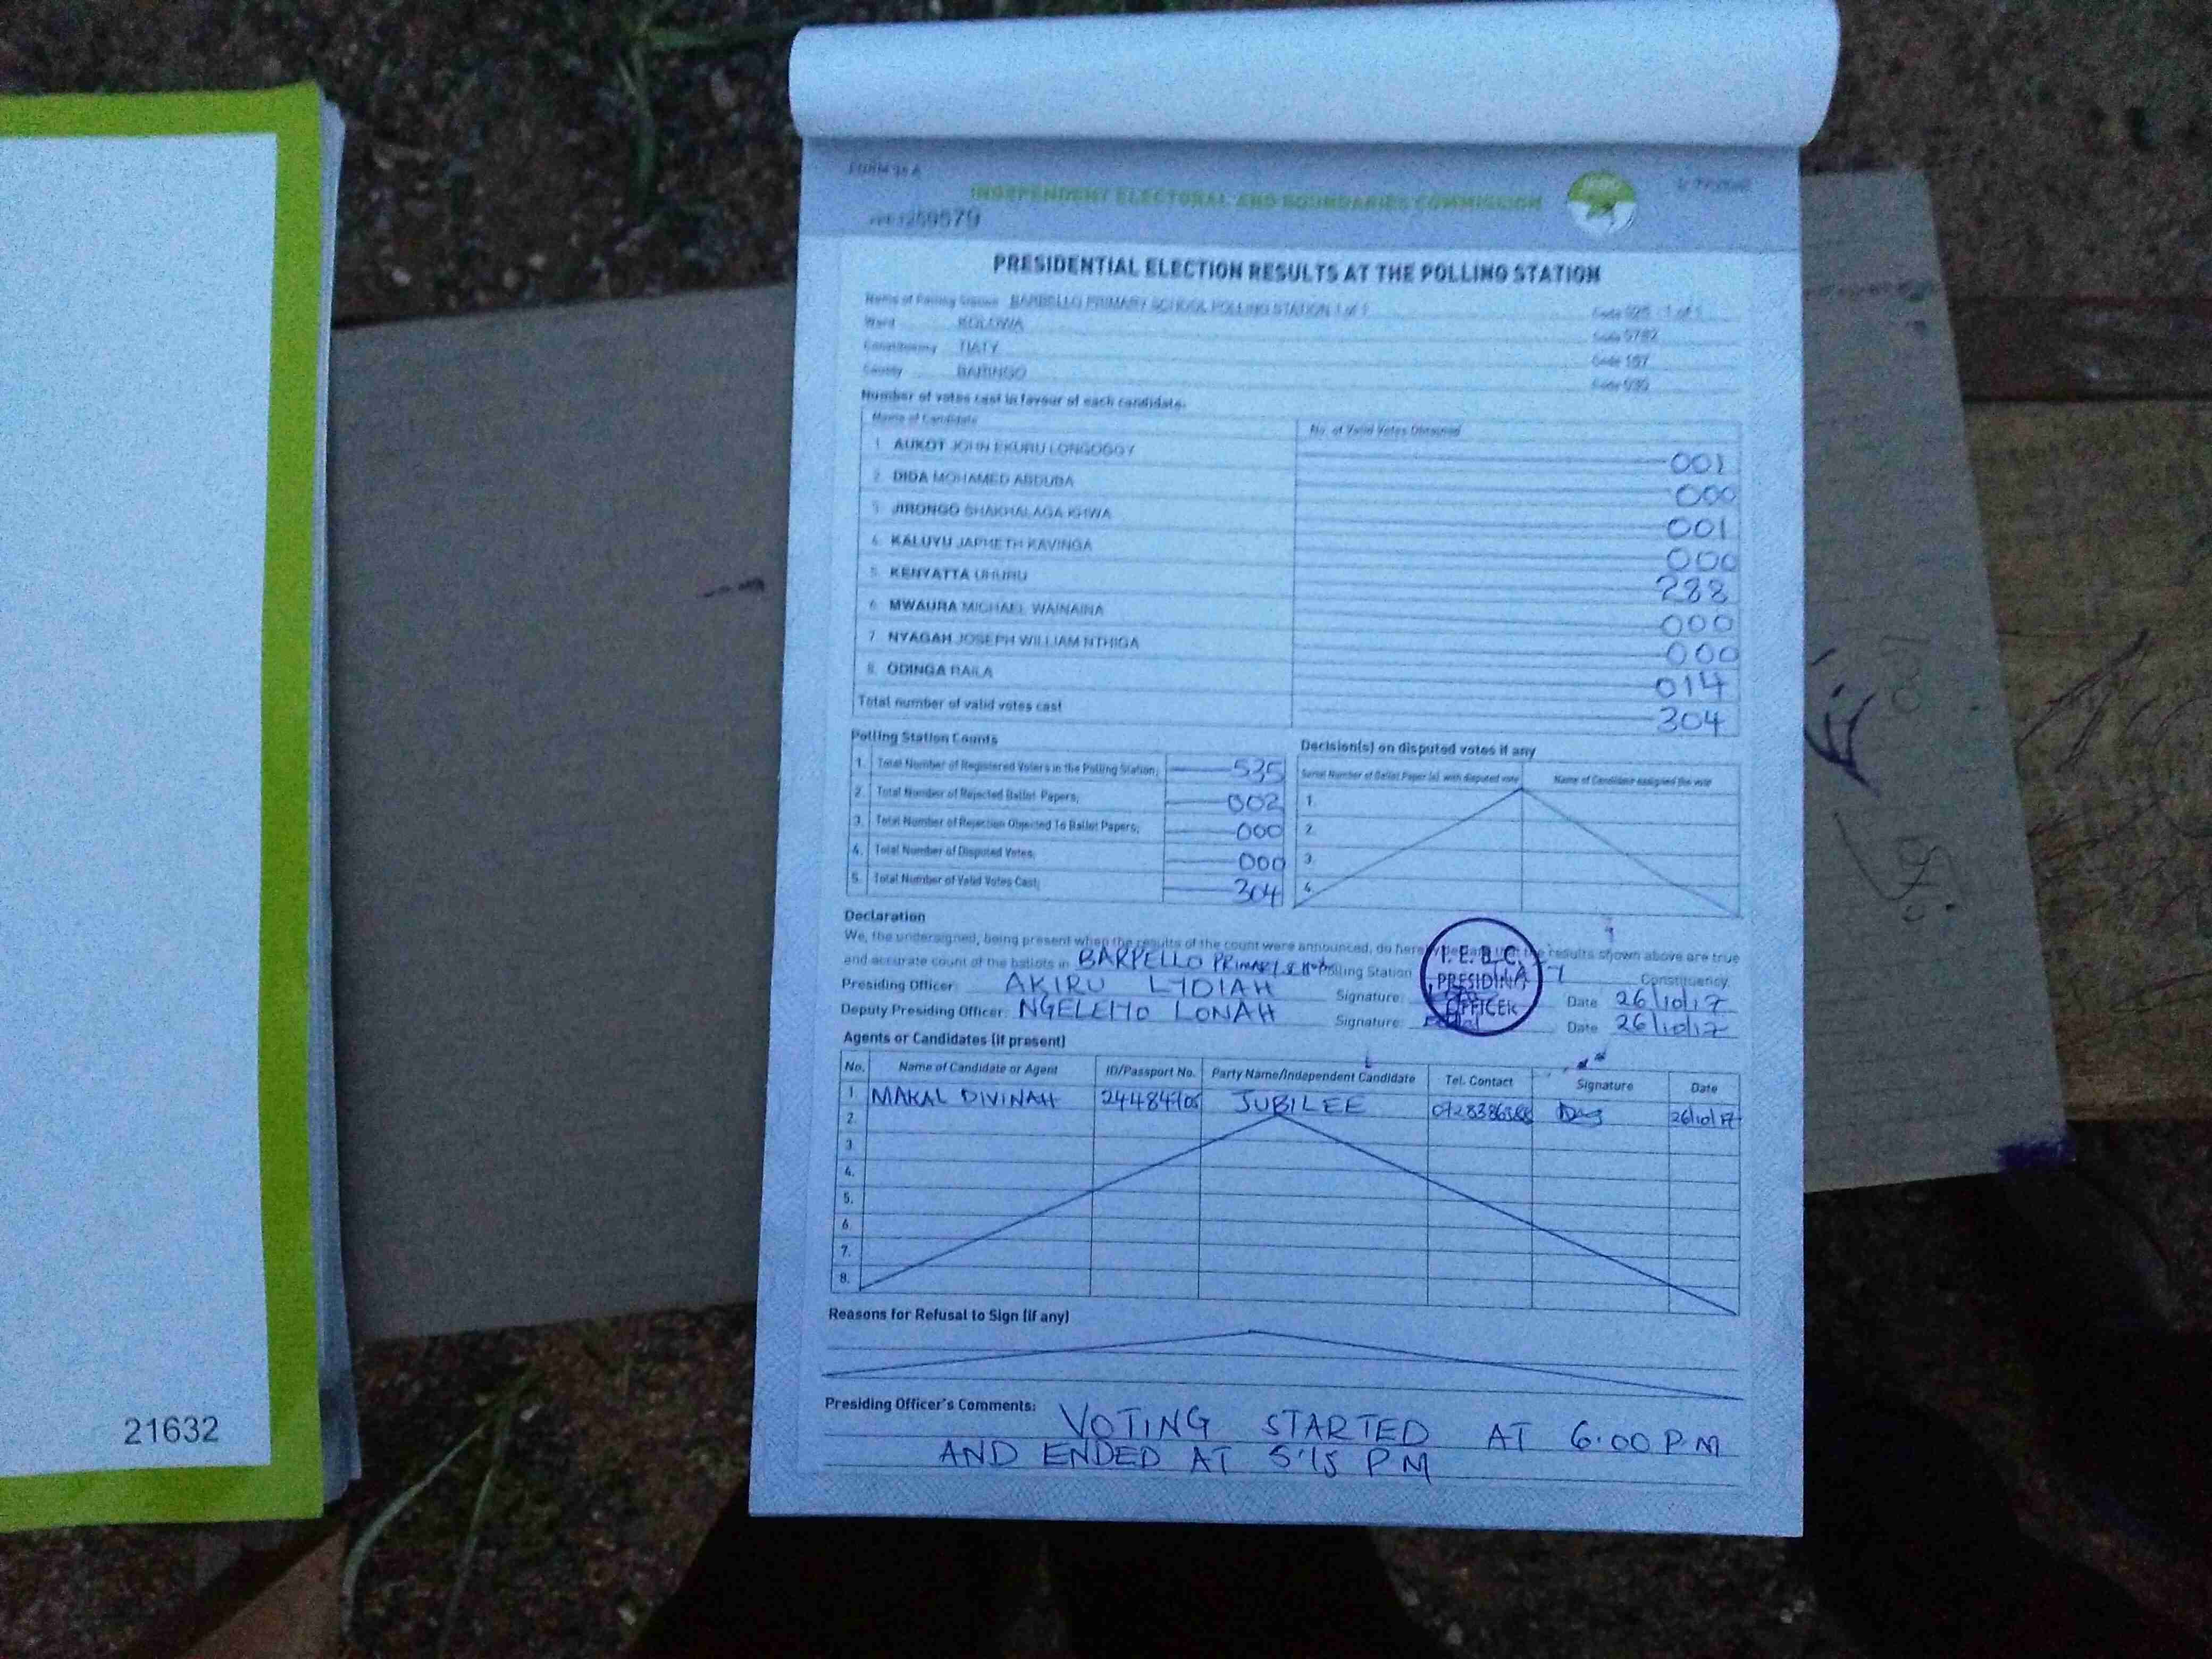 FORM 34 A
INDEPENDENT ELECTORAL AND BOUNDARIES COMMISSION
PRESIDENTIAL ELECTION RESULTS AT THE POLLING STATION
Name of Polling Station BARPELLO PRIMARY SCHOOL POLLING STATION 1 of 1 Code 025 1 of 1
Ward KOLOWA Code 0782
Constituency TIATY Code 157
County BARINGO Code 030
Number of votes cast in favour of each candidate.
Name of Candidate No. of Valid Votes Obtained
1. AUKOT JOHN EKURU LONGOGGY 001
2. DIDA MOHAMED ABDUBA 000
3. JIRONGO SHAKHALAGA KHWA 001
4. KALUYU JAPHETH KAVINGA 000
5. KENYATTA UHURU 288
6. MWAURA MICHAEL WAINAINA 000
7. NYAGAH JOSEPH WILLIAM NTHIGA 000
8. ODINGA RAILA 014
Total number of valid votes cast 304
Polling Station Counts
1. Total Number of Registered Voters in the Polling Station; 535
2. Total Number of Rejected Ballot Papers; 002
3. Total Number of Rejection Objected To Ballot Papers; 000
4. Total Number of Disputed Votes; 000
5. Total Number of Valid Votes Cast; 304
Decision(s) on disputed votes if any
Serial Number of Ballot Paper (s) with disputed vote Name of Candidate assigned the vote
1.
2.
3.
4.
Declaration
We, the undersigned, being present when the results of the count were announced, do hereby declare that the results shown above are true
and accurate count of the ballots in BARPELLO PRIMARY Polling Station Constituency.
I.E.B.C.
PRESIDING
OFFICER
Presiding Officer: AKIRU LYDIAH Signature: Date 26/10/17
Deputy Presiding Officer: NGELEIYO LONAH Signature: Date 26/10/17
Agents or Candidates (if present)
No. Name of Candidate or Agent ID/Passport No. Party Name/Independent Candidate Tel. Contact Signature Date
1 MAKAL DIVINAH JUBILEE 26/10/17
2.
3.
4.
5.
6.
7.
8.
Reasons for Refusal to Sign (if any)
Presiding Officer's Comments: VOTING STARTED AT 6.00 PM
AND ENDED AT 5.15 PM
21632